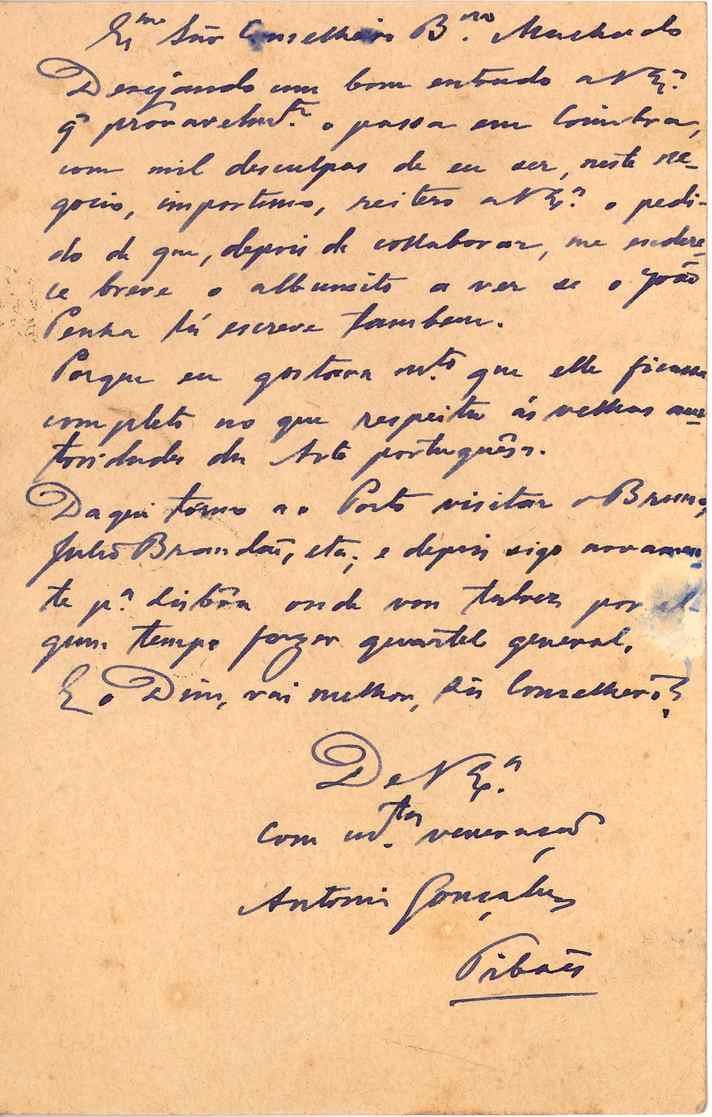 Ex.mo Snr Conselheiro B.no Machado
Desejando um bom entrudo a V Ex.ª
q̃ provavelmt.e o passa em Coimbra,
com mil desculpas de eu ser, neste ne-
gocio, importuno, reitero a V Ex.ª o pedi-
do de que, depois de collaborar, me endere-
ce breve o albunsito a ver se o João
Penha lá escreve tambem.
Porque eu gostava m.to que elle ficasse
completo no que respeita ás velhas au-
toridades da Arte portuguêsa.
Daqui torno ao Porto visitar o Bruno,
Julio Brandão, etc; e depois sigo novamen-
te p.ª Lisbôa onde vou talvez por al
gum tempo fazer quartel general.
E o Dim, vai melhor, Snr Conselheiro?
De V Ex.ª
Com m.tas veneração
Antonio Gonçalves
Tibães